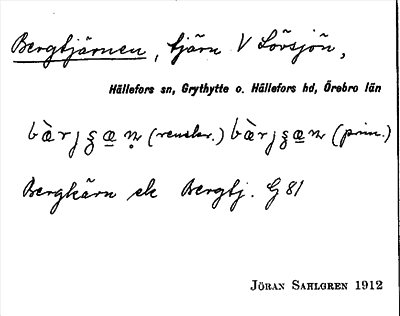 Bergtjärnen, tjärn V Lövsjön,
Hällefors sn, Grythytte o. Hällefors hd, Örebro län
(prim.)
Bergkärn ek Bergtj. G 81
JÖRAN SAHLGREN 1912